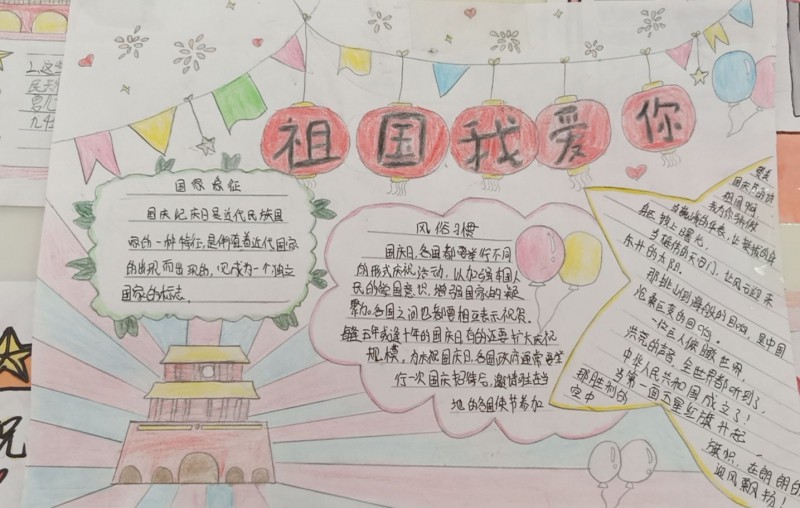 祖国我爱你
国家象征
国庆纪念日是近代民族国
家的一种特征,是伴随着近代国家
的出现而出现的,它成为一个独立
国家的标志。
风俗习惯
国庆日,各国都要举行不同
的形式庆祝活动,以加强本国人
民的爱国意识,增强国家的凝
聚力。各国之间也都要相互表示祝贺。
每逢五年或逢十年的国庆日,有的还要扩大庆祝
规模,为庆祝国庆日,各国政府通常要举
行一次国庆招待会,邀请驻在当
地的各国使节参加
国庆节的诗
祖国啊,
我为你骄傲
当巍巍的华表,让挺拔的身
躯披上曙光。
当雄伟的天安门,让风云迎来
东升的太阳。
那挑山倒海般的回响,是中国
沧桑巨变的回响。
一位巨人俯瞰世间,
洪亮的声音,全世界都听到了,
中华人民共和国成立了!
当第一面五星红旗升起
那胜利的
旗帜,在朗朗的
空中
迎风飘扬!